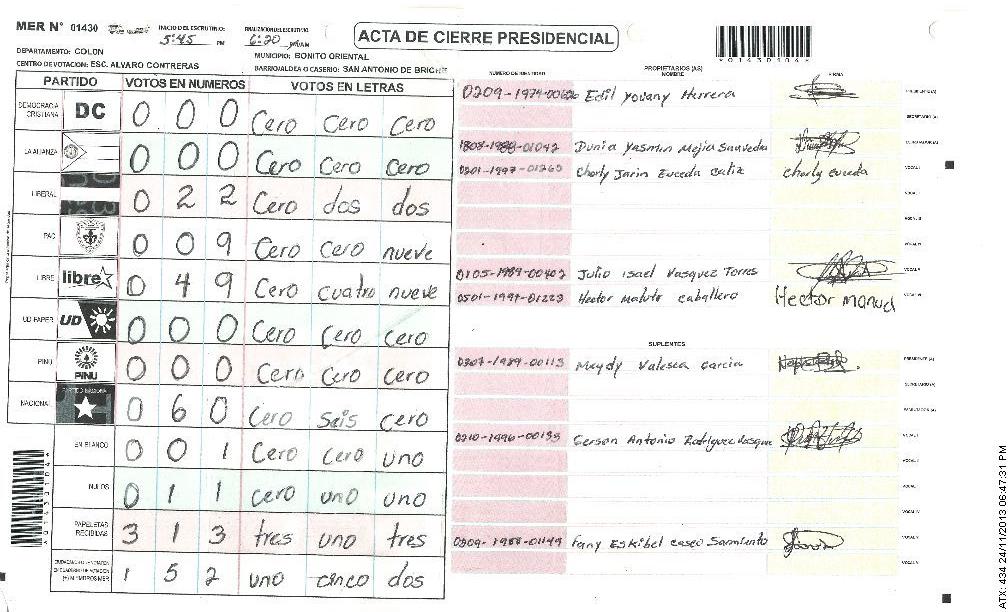 MER N° 01430 INICIO DEL ESCRUTINIO: 5:45 PM FINALIZACION DEL ESCRUTINIO: 6:20 PM/AM ACTA DE CIERRE PRESIDENCIAL
DEPARTAMENTO: COLON MUNICIPIO: BONITO ORIENTAL
CENTRO DE VOTACION: ESC. ALVARO CONTRERAS BARRIO/ALDEA O CASERIO: SAN ANTONIO DE BRIC
*01430104*
PARTIDO VOTOS EN NUMEROS VOTOS EN LETRAS
DEMOCRACIA CRISTIANA DC 0 0 0 Cero Cero Cero
LA ALIANZA 0 0 0 Cero Cero Cero
LIBERAL 0 2 2 Cero dos dos
PAC 0 0 9 Cero Cero nueve
LIBRE libre 0 4 9 Cero cuatro nueve
UD FAPER UD 0 0 0 Cero Cero Cero
PINU PINU 0 0 0 Cero Cero Cero
NACIONAL 0 6 0 Cero seis cero
EN BLANCO 0 0 1 Cero Cero uno
NULOS 0 1 1 cero uno uno
PAPELETAS RECIBIDAS 3 1 3 tres uno tres
(+) MIEMBROS MER 1 5 2 uno cinco dos
PROPIETARIOS (AS)
NUMERO DE IDENTIDAD NOMBRE FIRMA
0209-1974-00 Edil Yovany Herrera PRESIDENTE (A)
SECRETARIO (A)
Dunia Yasmin Mejia Sauveda ESCRUTADOR (A)
0201-1997-01265 Charly Jarin Euceda charly euceda VOCAL I
VOCAL II
VOCAL III
VOCAL IV
0105-1989-00402 Julio Isael Vasquez Torres VOCAL V
0501-1997-01223 Hector Matute caballero Hector manuel VOCAL VI
SUPLENTES
0207-1989-00113 Maydy Valesca Garcia PRESIDENTE (A)
SECRETARIO (A)
ESCRUTADOR (A)
0210-1996-00135 Gerson Antonio Rodriguez Vasquez VOCAL I
VOCAL II
VOCAL III
VOCAL IV
0209-1988-01149 Fany Eskibel Sarmiento VOCAL V
VOCAL VI
ATX: 434 24/11/2013 06:47:31 PM